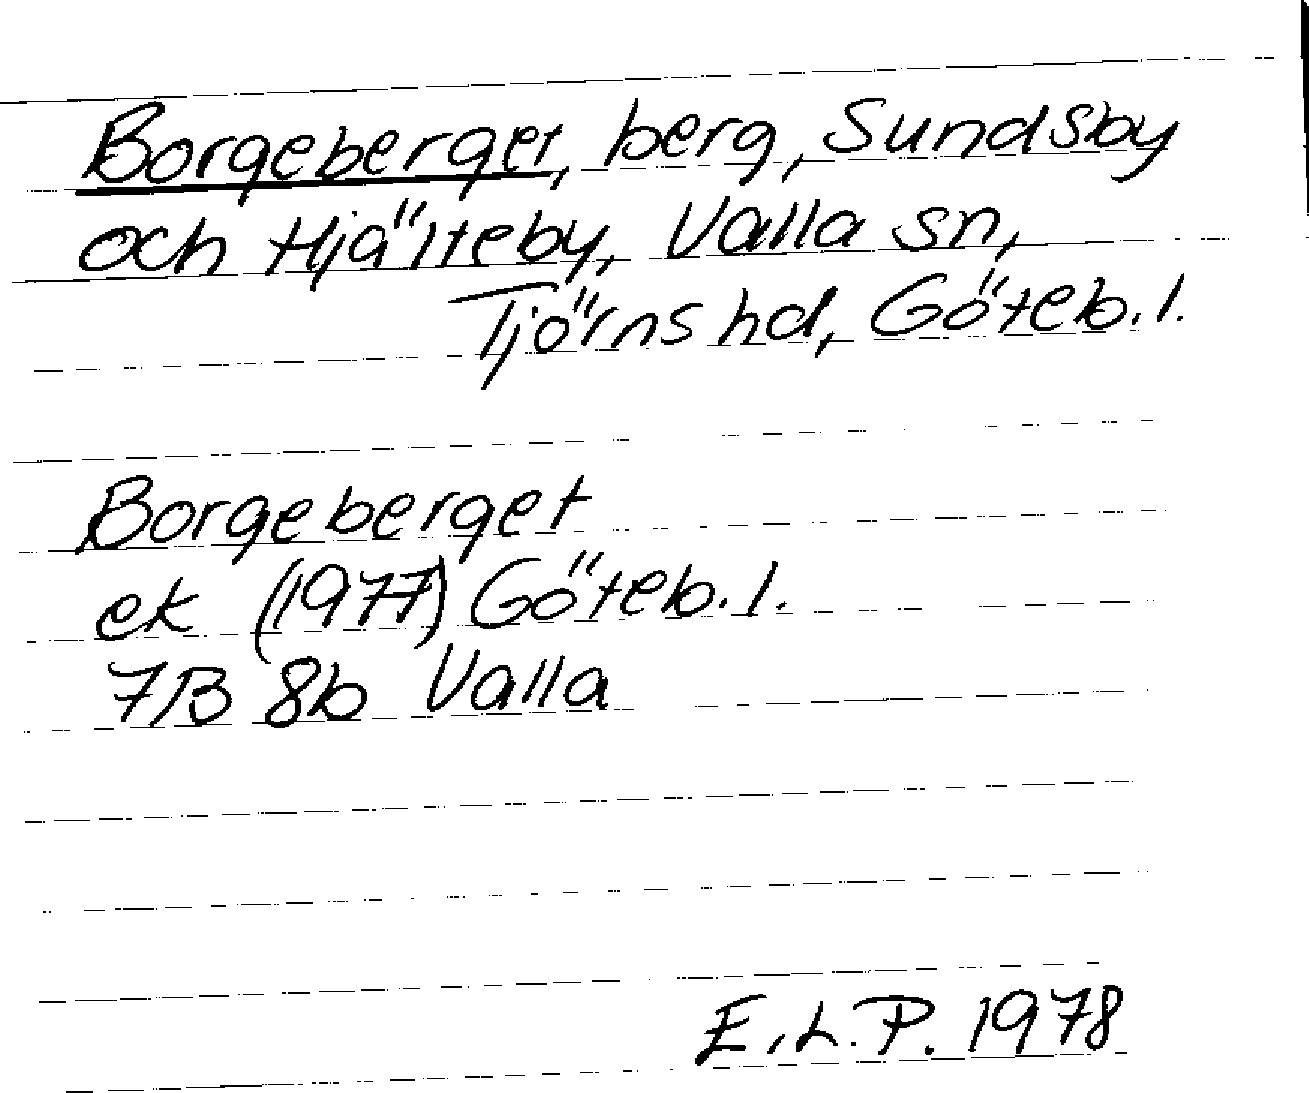 Borgeberget, berg, Sundsby
och Hjälteby, Valla sn,
Tjörns hd, Göteb. l.
Borgeberget
ek (1977) Göteb. l.
7B 8b Valla
E.L.P. 1978